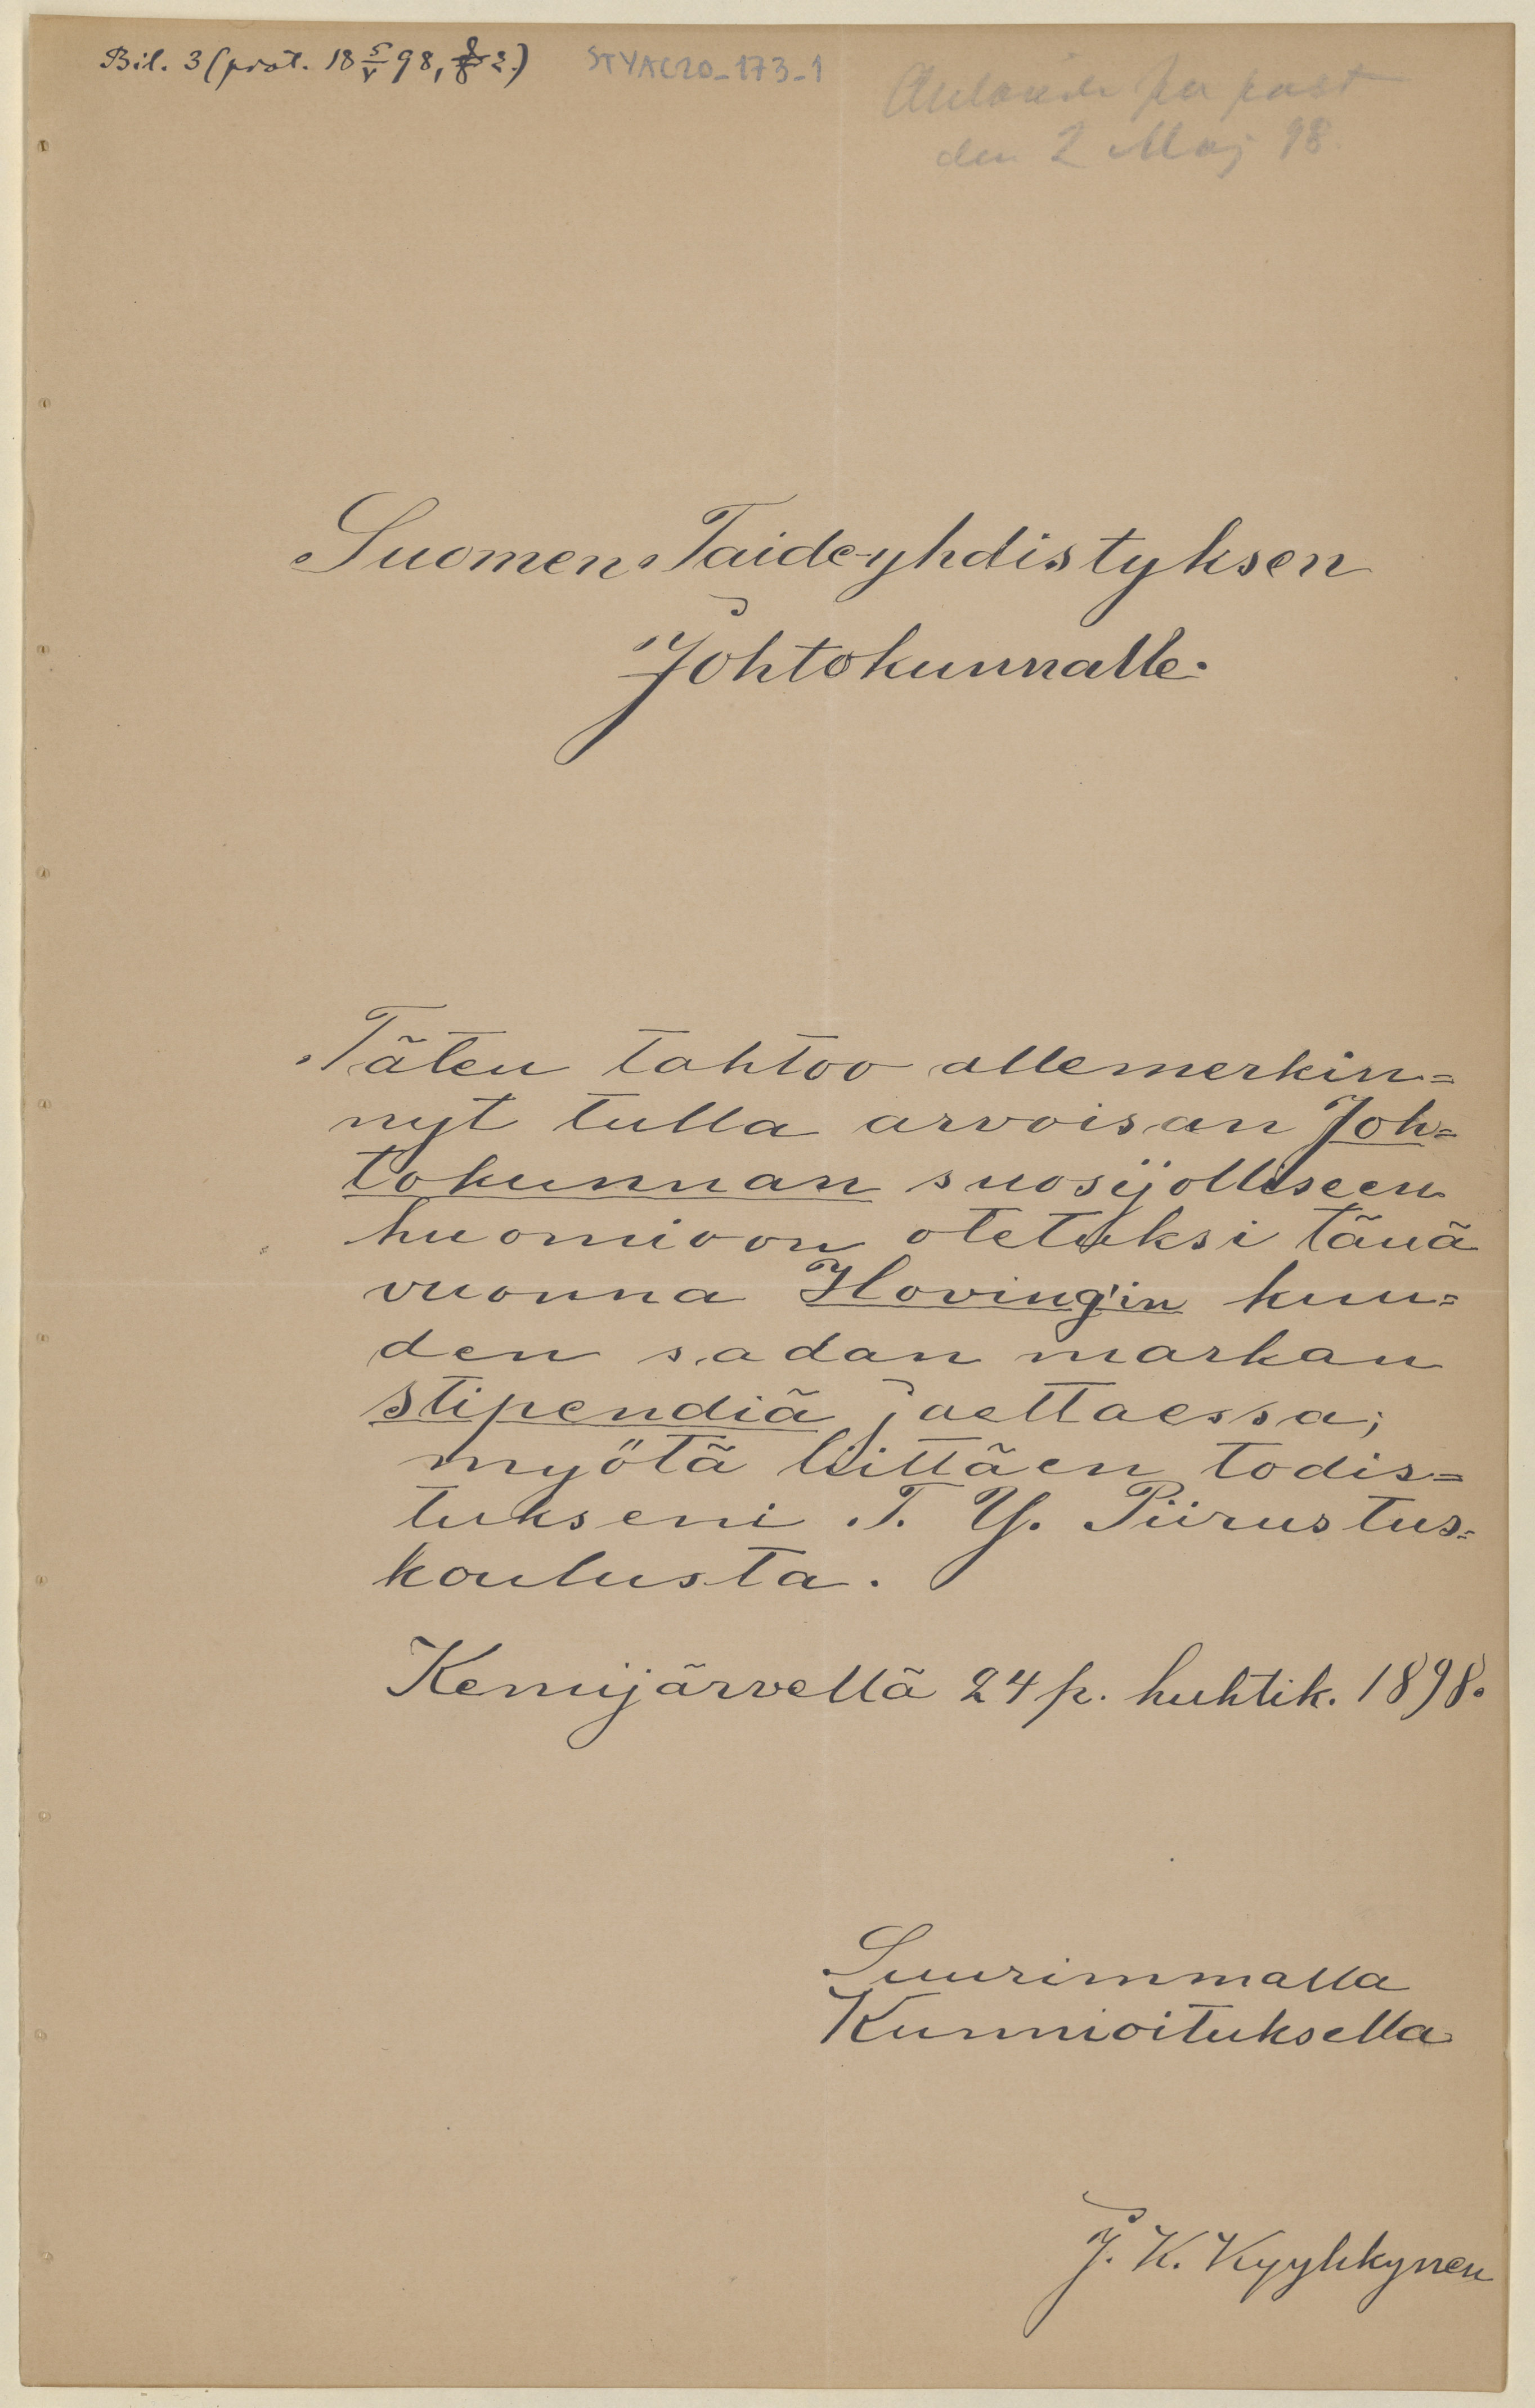 Bil. 3 (prot. 18 5/V 98, § 2.) STYAC20_173_1
Anlände per post
den 2 Maj 98.
Suomen Taide-yhdistyksen
Johtokunnalle.
Täten tahtoo allemerkin=
nyt tulla arvoisan Joh=
tokunnan suosijolliseen
huomioon otetuksi tänä
vuonna Hoving'in kuu=
den sadan markan
stipendiä jaettaessa;
myötä liittäen todis=
tukseni T. Y. Piirustus=
koulusta.
Kemijärvellä 24 p. huhtik. 1898.
Suurimmalla
Kunnioituksella
J. K. Kyyhkynen